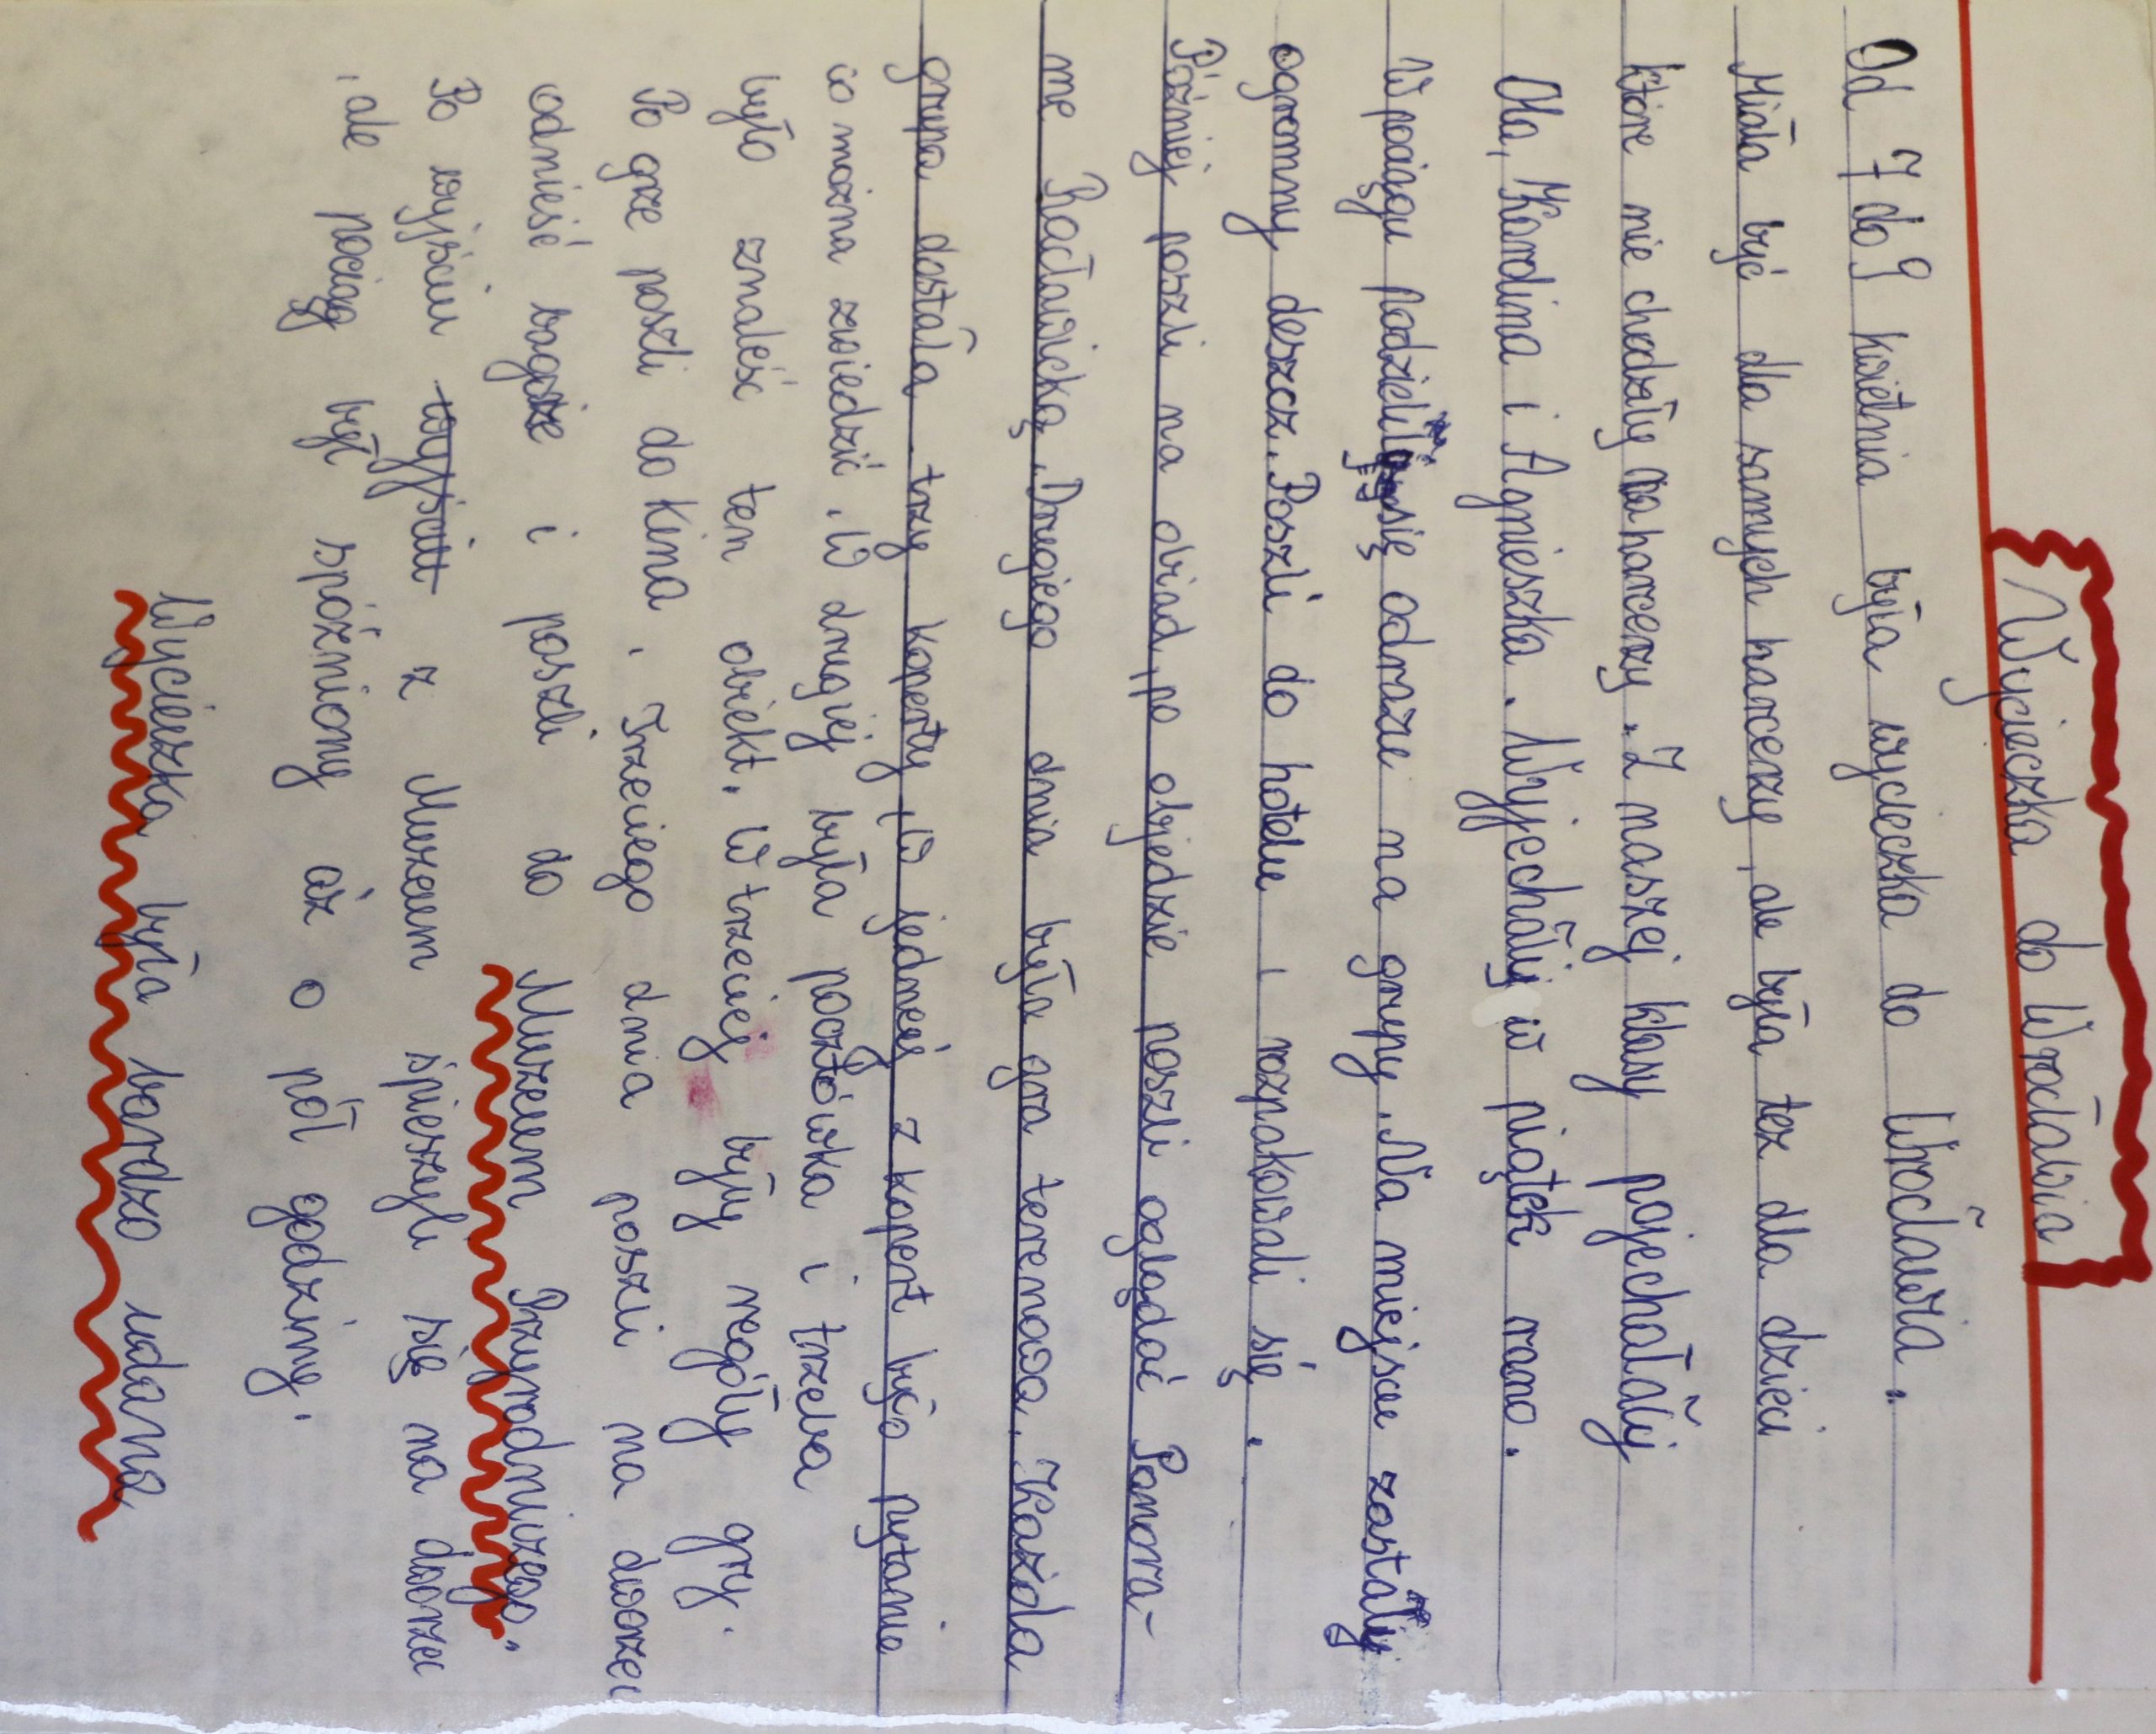 Wycieczka do Wrocławia
Od 7 do 9 kwietnia była wycieczka do Wrocławia.
Miała być dla samych harcerzy, ale była tez dla dzieci
które nie chodziły na harcerzy. Z naszej klasy pojechały
Ola, Karolina i Agnieszka. Wyjechały w piątek rano.
W pociągu podzielili się odrazie na grupy. Na miejsce zastał
ogromny deszcz. Poszli do hotelu i rozpakowali się.
Później poszli na obiad, po objedzie poszli oglądać Panora-
mę Racławicką. Drugiego dnia była gra terenowa. Każda
grupa dostała trzy koperty, w jednej z kopert było pytanie
co można zwiedzić. W drugiej była pocztówka i trzeba
było znaleść ten obiekt. W trzeciej były regóły gry.
Po grze poszli do kina. Trzeciego dnia poszli na dworzec
odnieść bagaże i poszli do Muzeum Przyrodniczego.
Po wyjściu wyjściu z Muzeum śpieszyli się na dworzec
, ale pociąg był spóźniony aż o pół godziny.
Wycieczka była bardzo udana